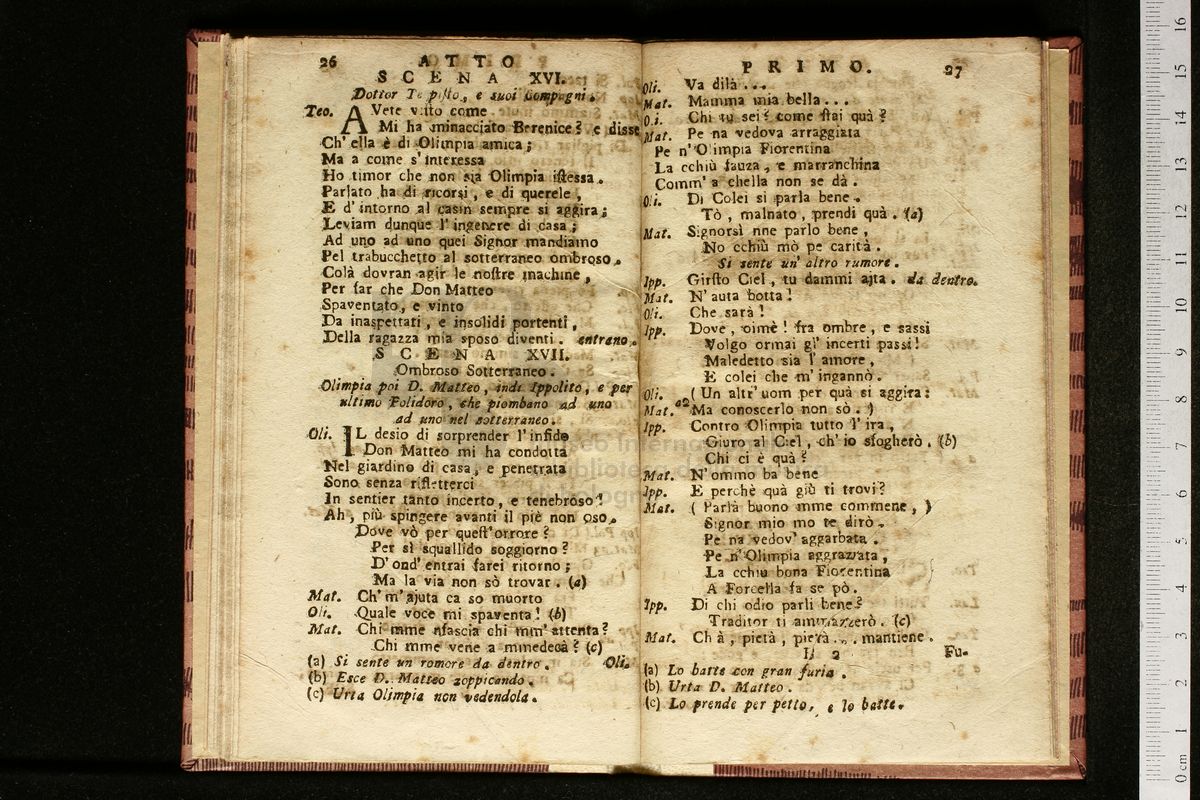 26 ATTO
SCENA XVI.
Dottor Teopisto, e suoi Compagni.
Teo. AVete visto come
Mi ha minacciato Berenice? e disse
Ch' ella è di Olimpia amica;
Ma a come s' interessa
Ho timor che non sia Olimpia istessa.
Parlato ha di ricorsi, e di querele,
E d' intorno al casin sempre si aggira;
Leviam dunque l' ingenere di casa;
Ad uno ad uno quei Signor mandiamo
Pel trabucchetto al sotterraneo ombroso.
Colà dovran agir le nostre machine,
Per far che Don Matteo
Spaventato, e vinto
Da inaspettati, e insolidi portenti,
Della ragazza mia sposo diventi. entrano.
SCENA XVII.
Ombroso Sotterraneo.
Olimpia poi D. Matteo, indi Ippolito, e per
ultimo Polidoro, che piombano ad uno
ad uno nel sotterraneo.
Oli. IL desio di sorprender l' infido
Don Matteo mi ha condotta
Nel giardino di casa, e penetrata
Sono senza rifletterci
In sentier tanto incerto, e tenebroso!
Ah, più spingere avanti il piè non oso.
Dove vò per quest' orrore?
Per sì squallido soggiorno?
D' ond' entrai farei ritorno;
Ma la via non sò trovar. (a)
Mat. Ch' m' ajuta ca so muorto
Oli. Quale voce mi spaventa! (b)
Mat. Chi mme nfascia chi mm' attenta?
Chi mme vene a mmedecà? (c)
Oli.
(a) Si sente un romore da dentro.
(b) Esce D. Matteo zoppicando.
(c) Urta Olimpia non vedendola.
PRIMO. 27
Oli. Va dilà...
Mat. Mamma mia bella...
Oli. Chi tu sei? come stai quà?
Mat. Pe na vedova arraggiata
Pe n' Olimpia Fiorentina
La cchiù fauza, e marranchina
Comm' a chella non se dà.
Oli. Di Colei si parla bene.
Tò, malnato, prendi quà. (a)
Mat. Signorsì nne parlo bene,
No cchiù mò pe carità.
Si sente un' altro rumore.
Ipp. Giusto Ciel, tu dammi aita. da dentro.
Mat. N' auta botta!
Oli. Che sarà!
Ipp. Dove, oimè! fra ombre, e sassi
Volgo ormai gl' incerti passi!
Maledetto sia l' amore,
E colei che m' ingannò.
Oli. (Un altr' uom per quà si aggira:
Mat. a2 Ma conoscerlo non sò.)
Ipp. Contro Olimpia tutto l' ira,
Giuro al Ciel, ch' io sfogherò. (b)
Chi ci è quà?
Mat. N' ommo ba bene
Ipp. E perchè quà giù ti trovi?
Mat. (Parlà buono mme commene,)
Signor mio mo te dirò.
Pe na vedov' aggarbata.
Pe n' Olimpia aggrazzata,
La cchiù bona Fiorentina
A Forcella fa se pò.
Ipp. Di chi odio parli bene?
Traditor ti ammazzerò. (c)
Mat. Ch à, pietà, pietà... mantiene.
2 Fu-
(a) Lo batte con gran furia.
(b) Urta D. Matteo.
(c) Lo prende per petto, e lo batte.